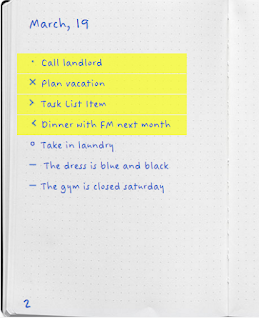 March, 19
· Call landlord
× Plan vacation
> Task List Item
< Dinner with FM next month
o Take in laundry
— The dress is blue and black
— The gym is closed saturday
2